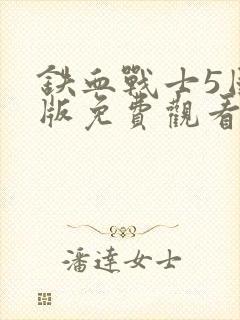 鉄血戰士5
版免費觀看
潘達女士